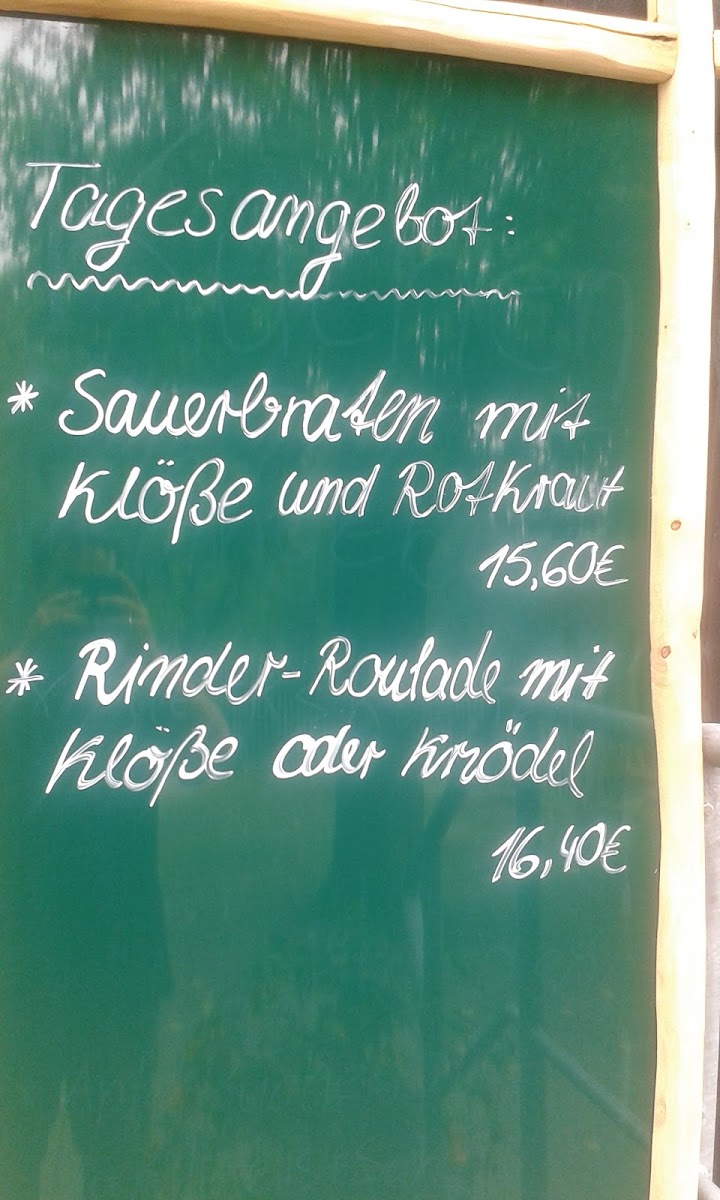 Tagesangebot:
* Sauerbraten mit
Klöße und Rotkraut
15,60€
* Rinder-Roulade mit
Klöße oder Knödel
16,40€